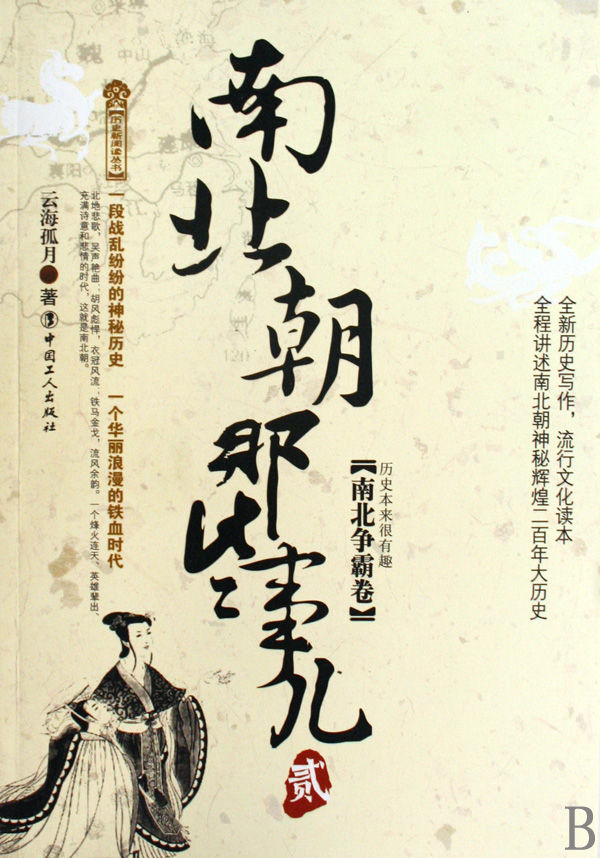 全新历史写作，流行文化读本
全程讲述南北朝神秘辉煌二百年大历史
历史本来很有趣
【南北争霸卷】
南北朝那些事儿
贰
【历史新阅读丛书】
一段战乱纷纷的神秘历史 一个华丽浪漫的铁血时代
北地悲歌，吴声艳曲，胡风彪悍，衣冠风流，铁马金戈，流风余韵。一个烽火连天、英雄辈出、
充满诗意和悲情的时代，这就是南北朝。
云海孤月 著 中国工人出版社
中山
建康
襄阳
120
B